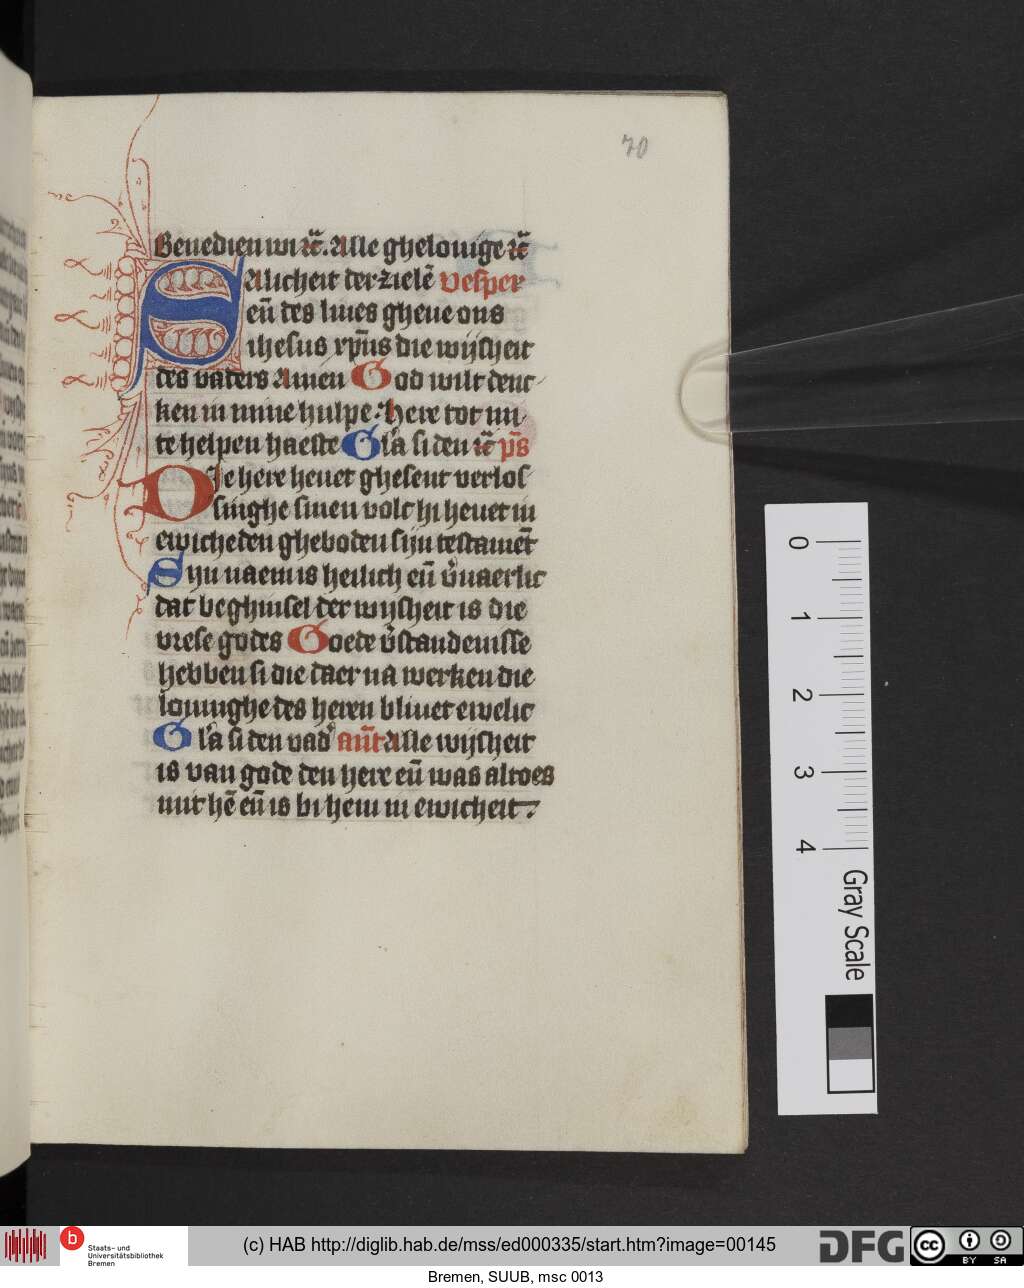 70
Benedien wi etc̄. Alle ghelouige etc̄
Salicheit der zielē Vesper
eñ des liues gheue ons
ihesus xp̄us die wijsheit
des vaders Amen God wilt denc
ken in mine hulpe: here tot mi
te helpen haeste Gl'a si den etc̄ p̄s
Die here heuet ghesent verlos
singhe sinen volc hi heuet in
ewicheden gheboden sijn testamēt
Sijn naem is heilich eñ v̄uaerlic
dat beghinsel der wijsheit is die
vrese godes Goede v̄standenisse
hebben si die daer na werken die
louinghe des heren bliuet ewelic
Gl'a si den vad' ant̄ Alle wijsheit
is van gode den here eñ was altoes
mit hē eñ is bi hem in ewicheit.
0
1
2
3
4
Gray Scale
b
Staats- und
Universitätsbibliothek
Bremen
(c) HAB http://diglib.hab.de/mss/ed000335/start.htm?image=00145
DFG
cc
BY SA
Bremen, SUUB, msc 0013